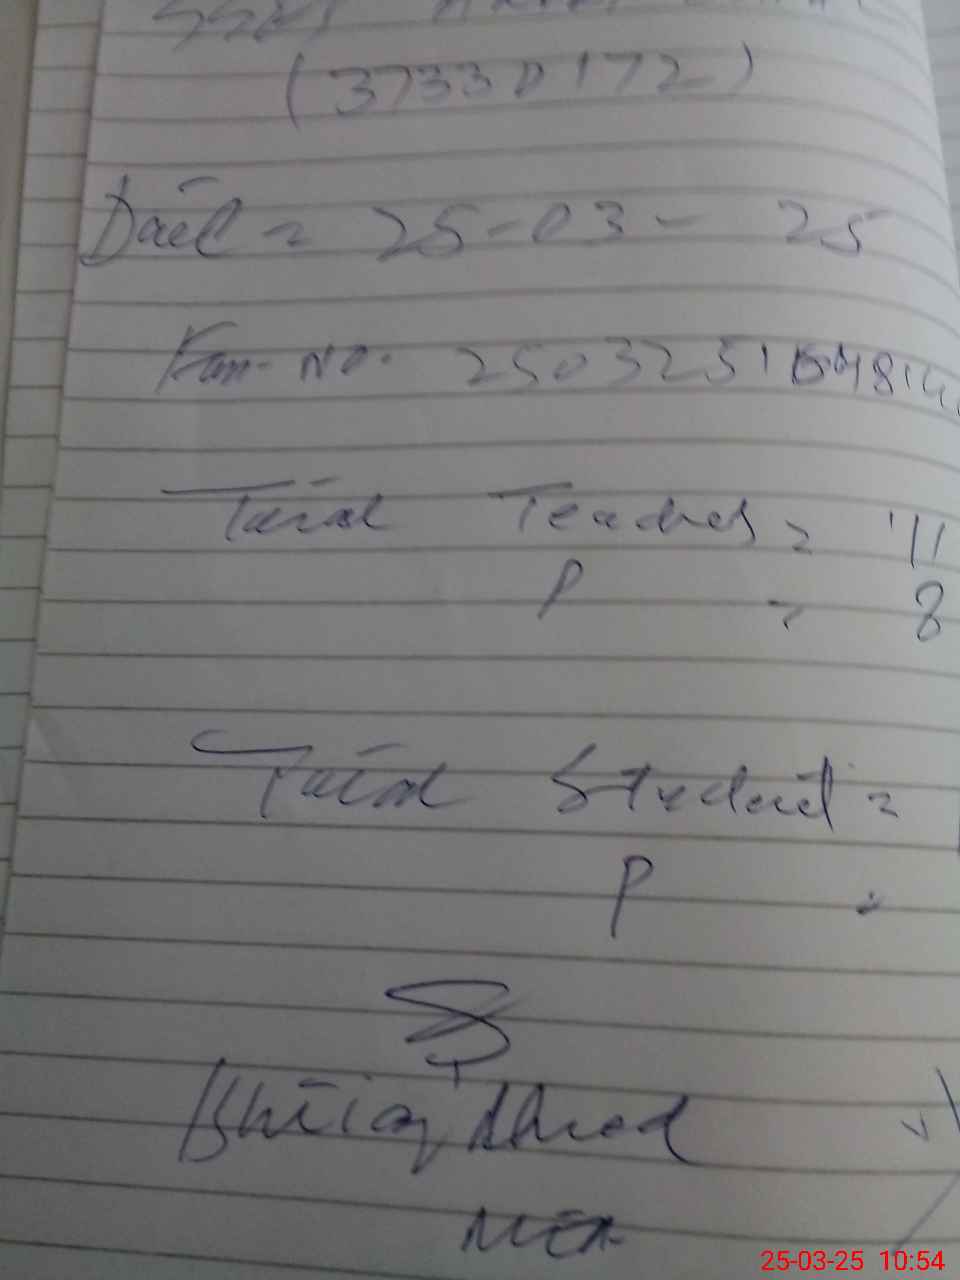 (37330172)
Date = 25-03-25
Fam. No. 250325104814
Total Teacher = 11
P = 8
Total Student =
P =
Ahmed
MEA
25-03-25 10:54